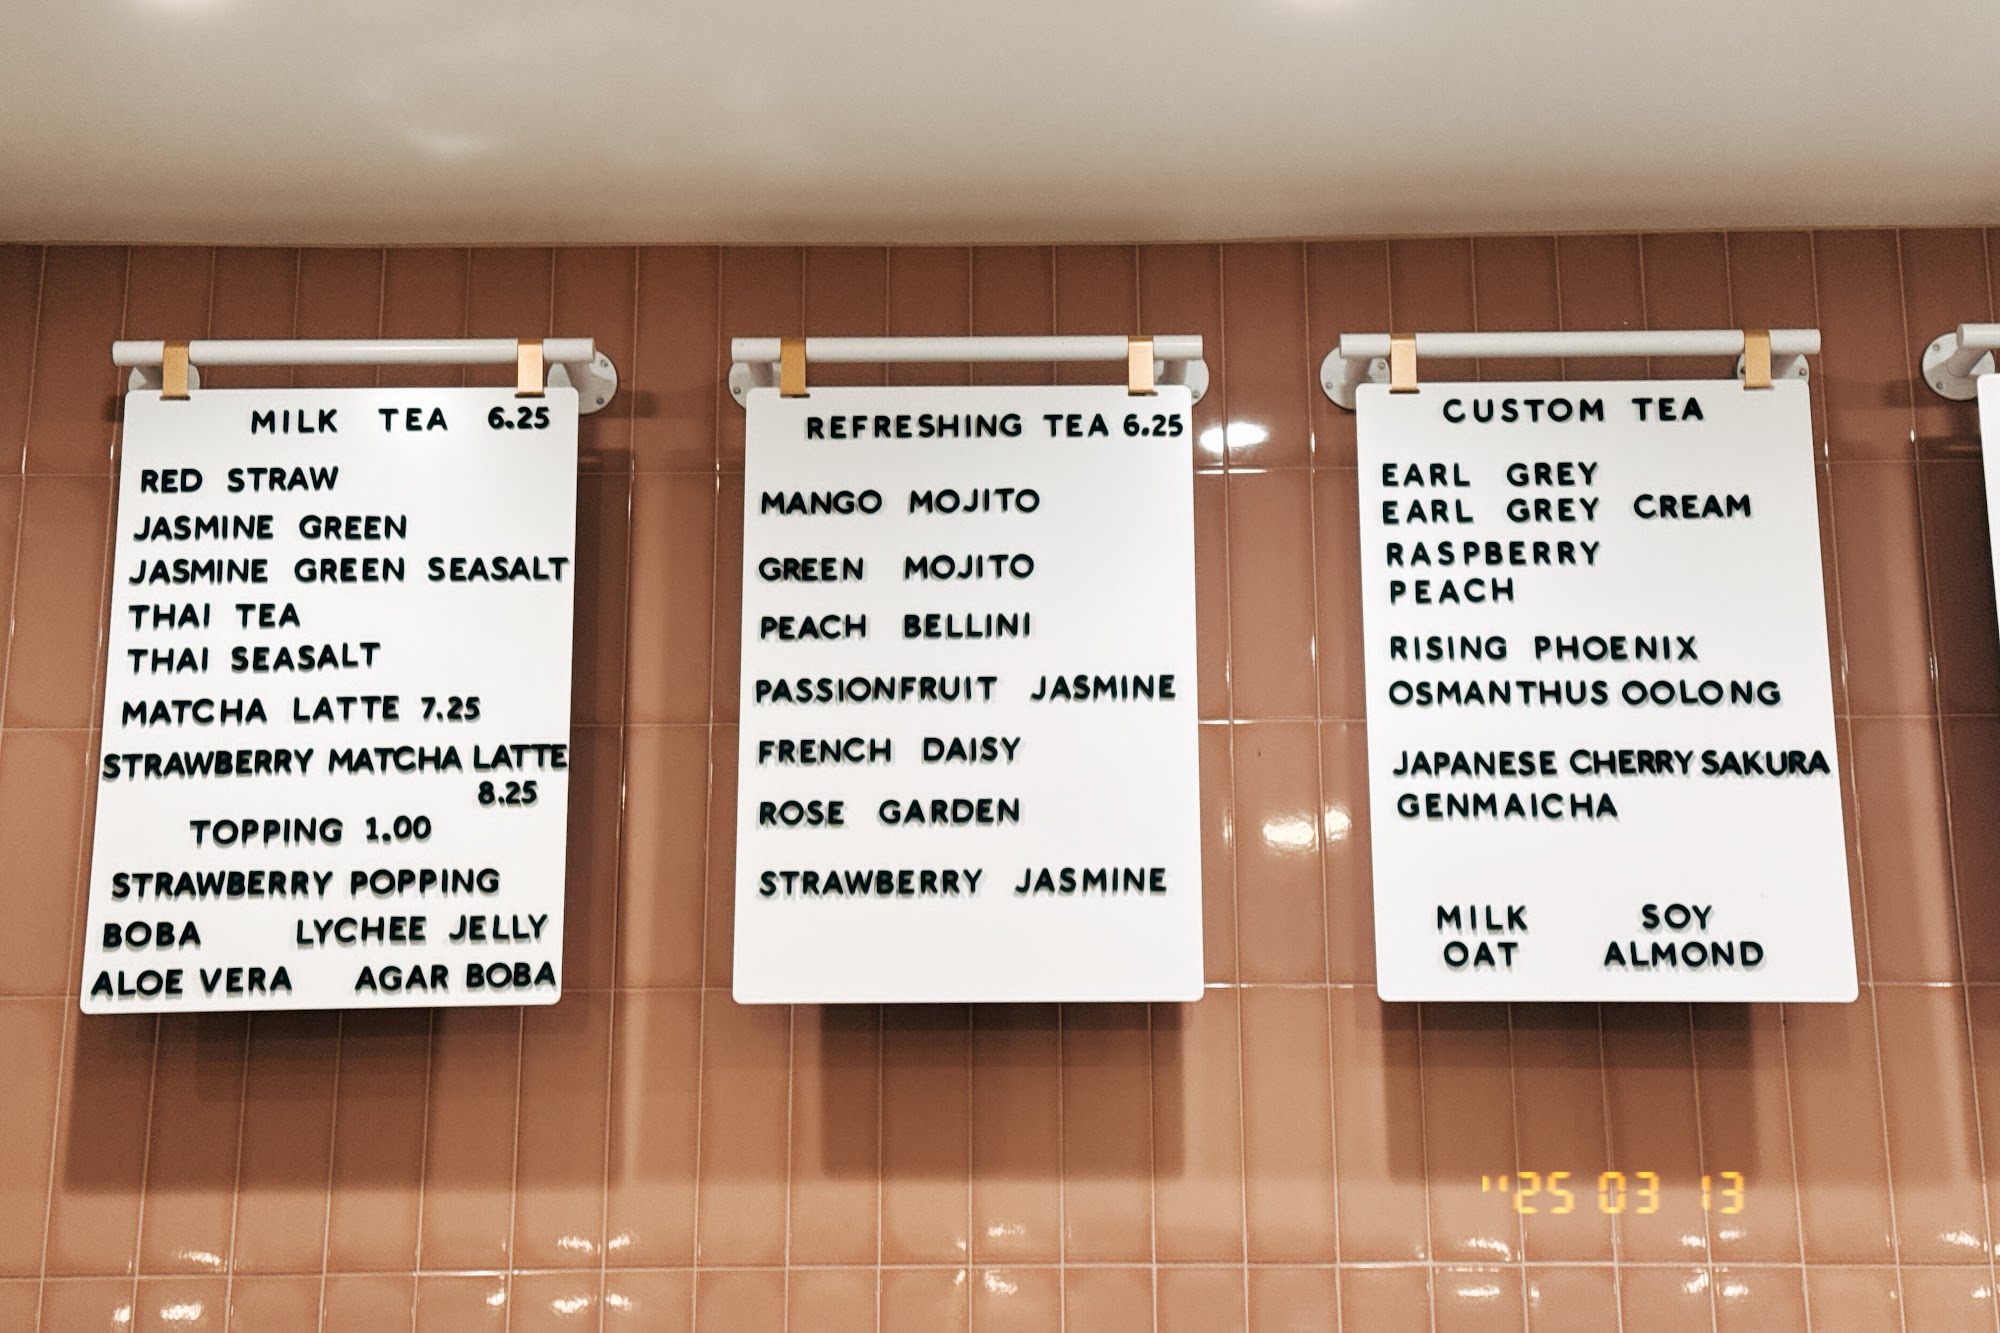 MILK TEA 6.25
RED STRAW
JASMINE GREEN
JASMINE GREEN SEASALT
THAI TEA
THAI SEASALT
MATCHA LATTE 7.25
STRAWBERRY MATCHA LATTE
8.25
TOPPING 1.00
STRAWBERRY POPPING
BOBA LYCHEE JELLY
ALOE VERA AGAR BOBA
REFRESHING TEA 6.25
MANGO MOJITO
GREEN MOJITO
PEACH BELLINI
PASSIONFRUIT JASMINE
FRENCH DAISY
ROSE GARDEN
STRAWBERRY JASMINE
CUSTOM TEA
EARL GREY
EARL GREY CREAM
RASPBERRY
PEACH
RISING PHOENIX
OSMANTHUS OOLONG
JAPANESE CHERRY SAKURA
GENMAICHA
MILK SOY
OAT ALMOND
''25 03 13